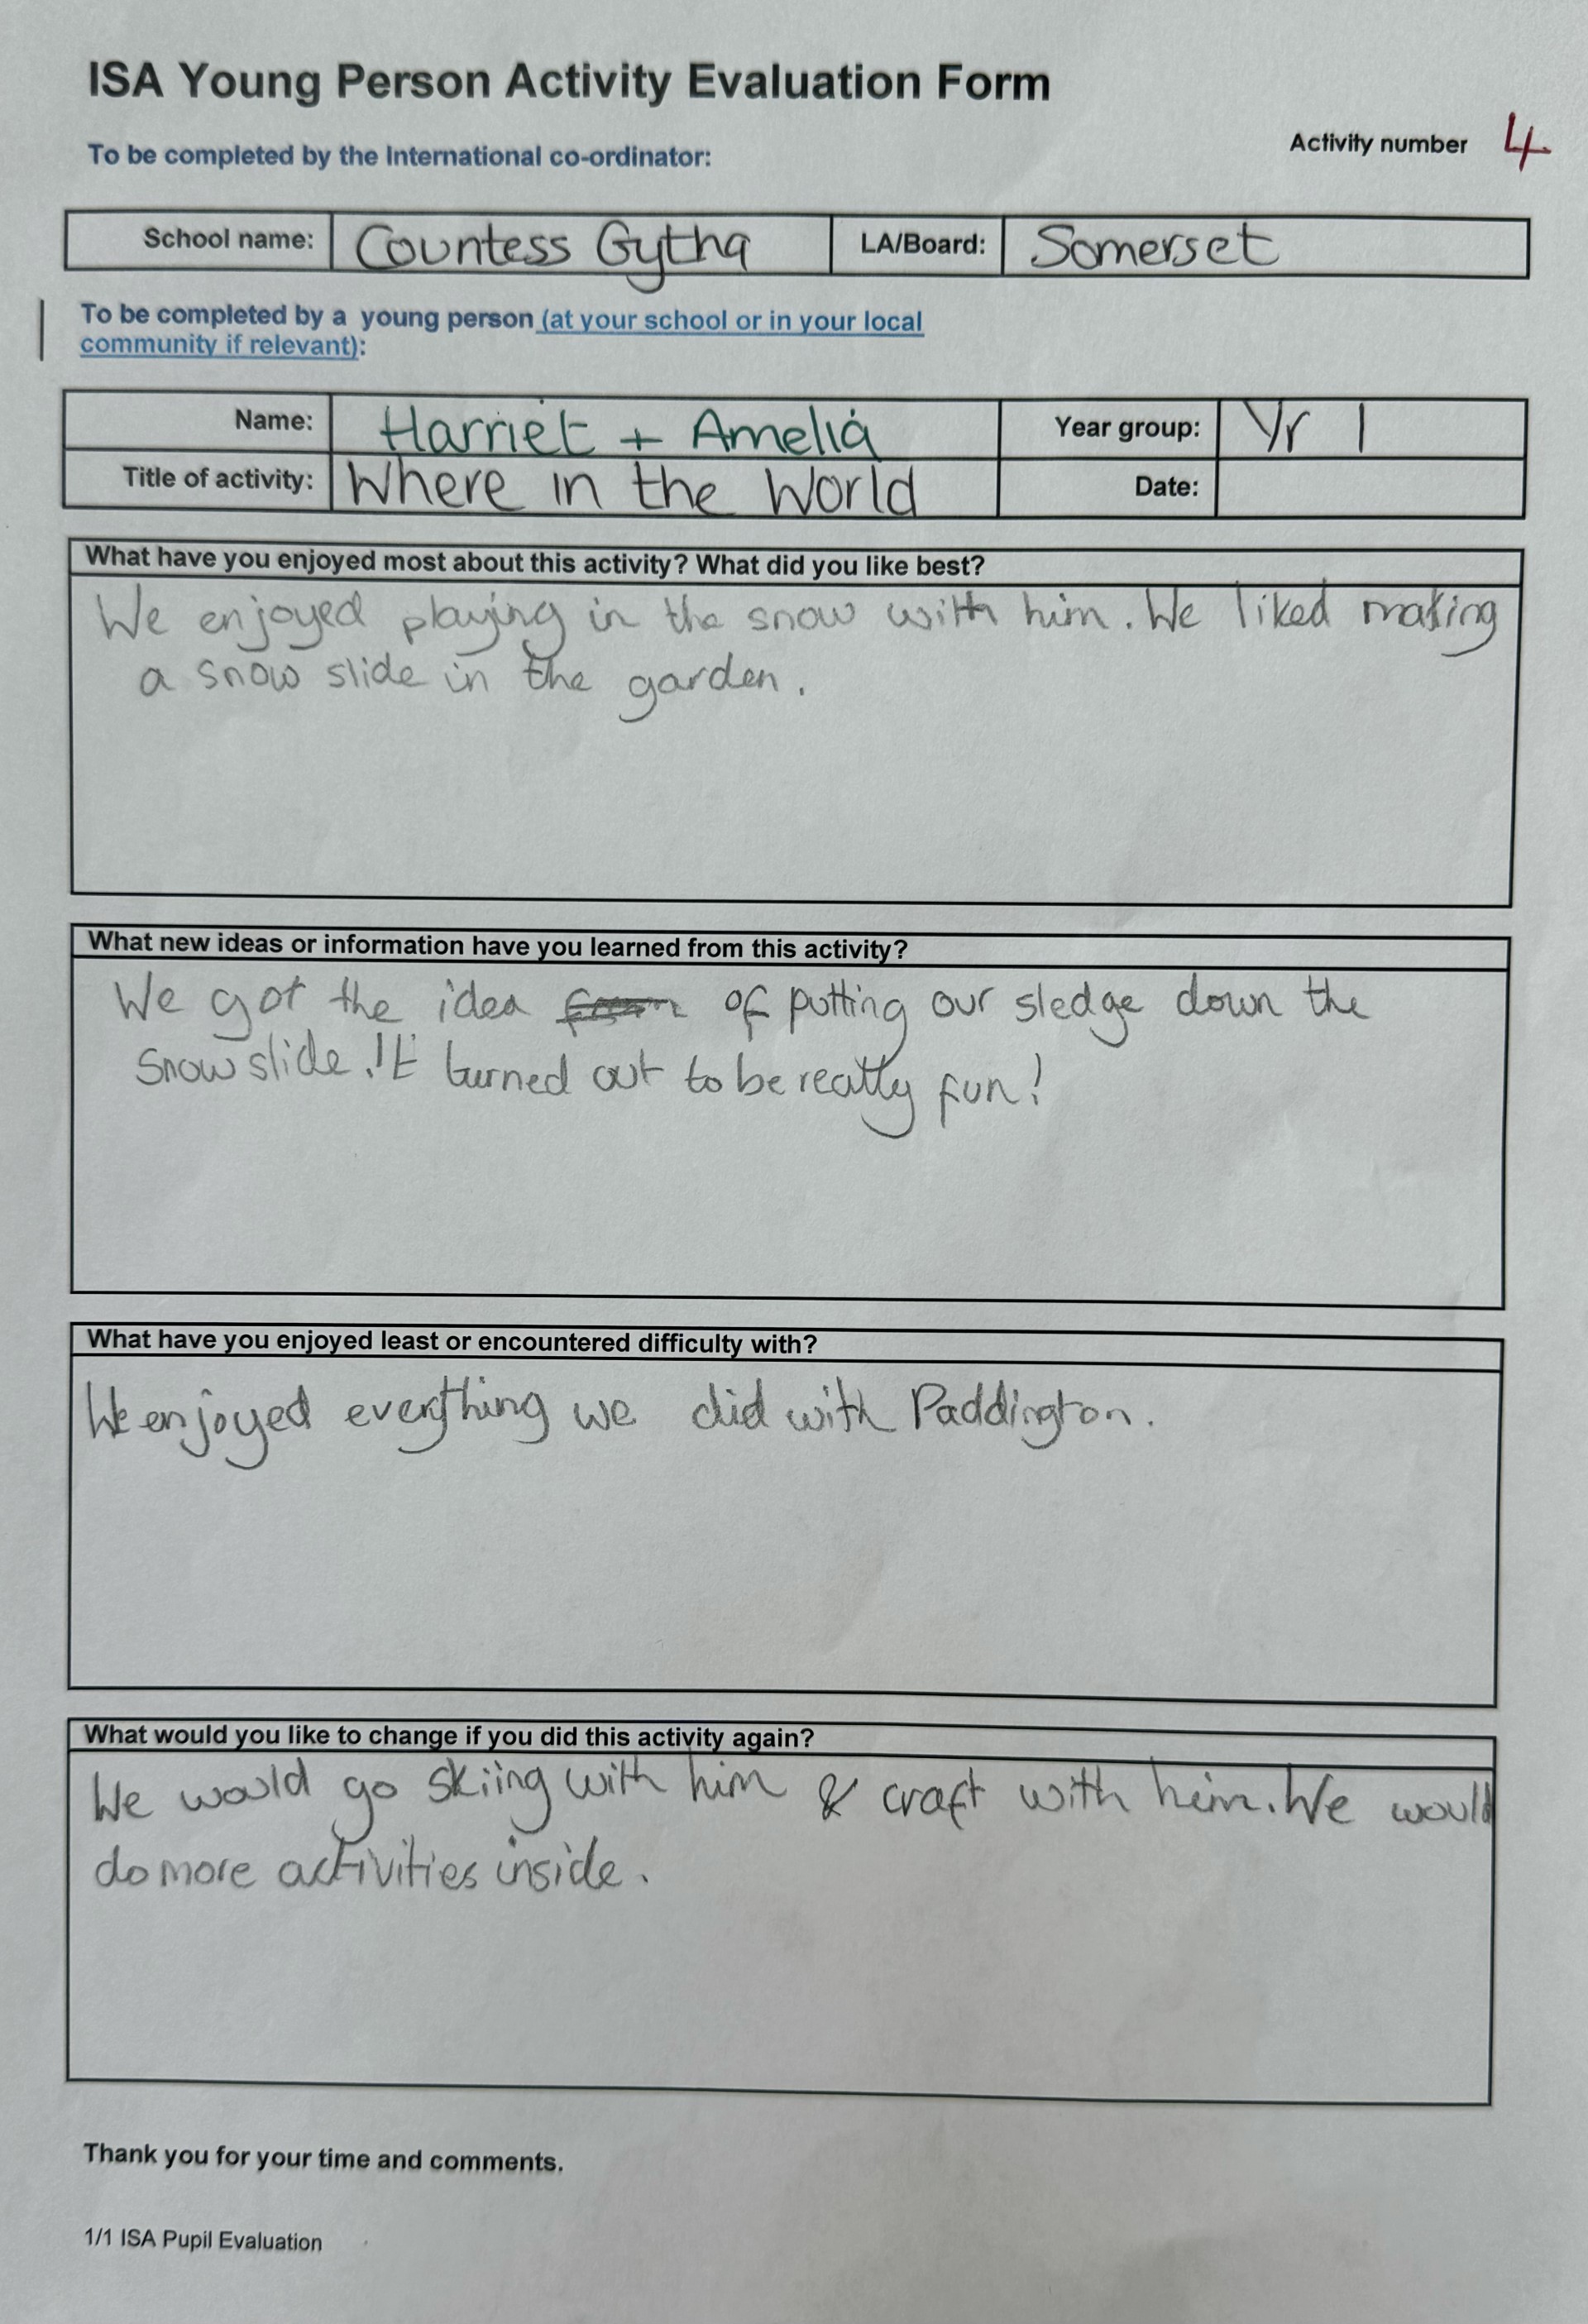 ISA Young Person Activity Evaluation Form
To be completed by the International co-ordinator:
Activity number 4
School name: Countess Gytha LA/Board: Somerset
To be completed by a young person (at your school or in your local
community if relevant):
Name: Harriet + Amelia Year group: Yr 1
Title of activity: Where in the World Date:
What have you enjoyed most about this activity? What did you like best?
We enjoyed playing in the snow with him. We liked making
a snow slide in the garden.
What new ideas or information have you learned from this activity?
We got the idea of putting our sledge down the
snow slide. It turned out to be really fun!
What have you enjoyed least or encountered difficulty with?
We enjoyed everything we did with Paddington.
What would you like to change if you did this activity again?
We would go skiing with him & craft with him. We would
do more activities inside.
Thank you for your time and comments.
1/1 ISA Pupil Evaluation